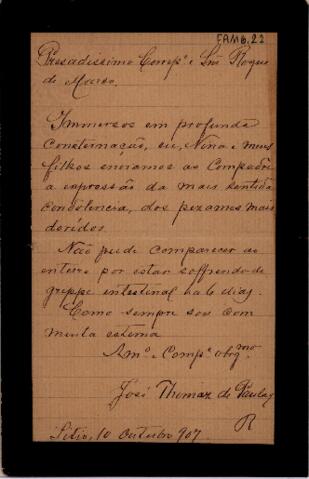 FAMB.22
Presadissimo Comp.e e Snr Roque
de Marco.
Immersos em profunda
consternação, eu, Nina e meus
filhos enviamos ao Compadre
a expressão da mais sentida
condolencia, dos pezames mais
doridos.
Não pude comparecer ao
enterro por estar soffrendo de
greppe intestinal ha 6 dias.
Como sempre sou com
muita estima
Am.o e Comp.e obrg.mo
José Thomaz de Paula
R
Sitio, 10 Outubro 907.